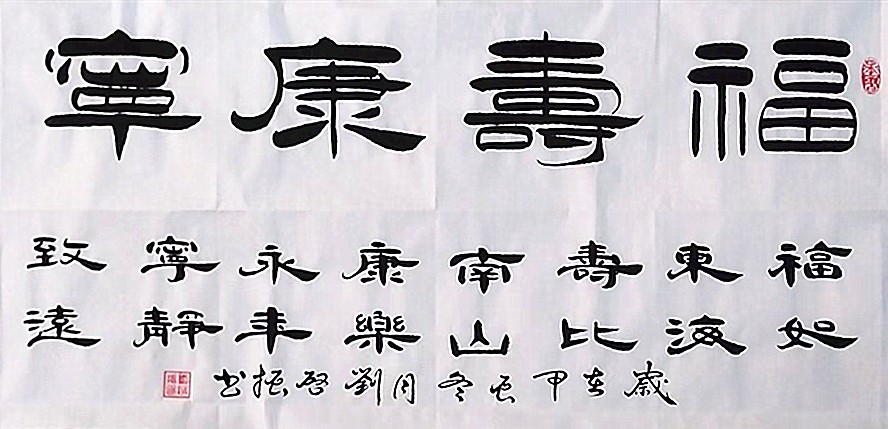 福壽康寧
福如
東海
壽比
南山
康樂
永年
寧靜
致遠
歲在甲辰冬月劉啓振书